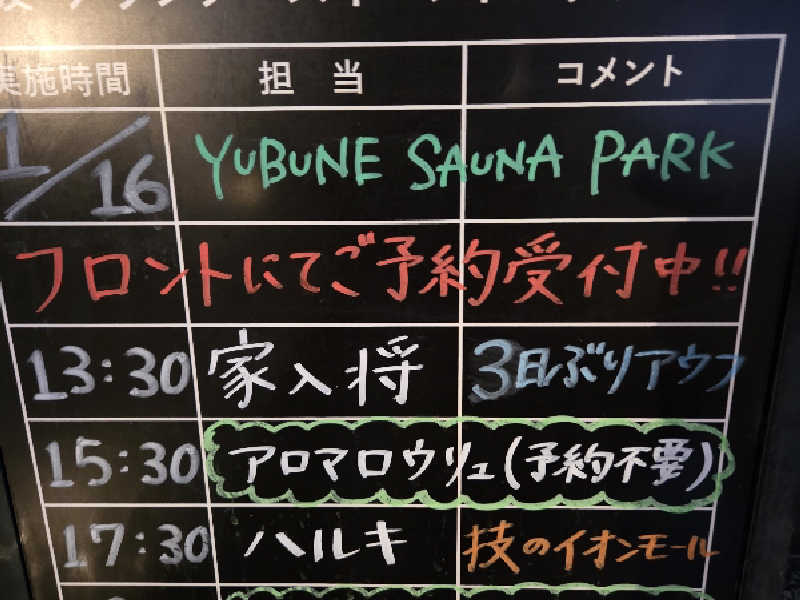 実施時間 担当 コメント
1/16 YUBUNE SAUNA PARK
フロントにてご予約受付中!!
13:30 家入将 3日ぶりアウフ
15:30 アロマロウリュ(予約不要)
17:30 ハルキ 技のイオンモール